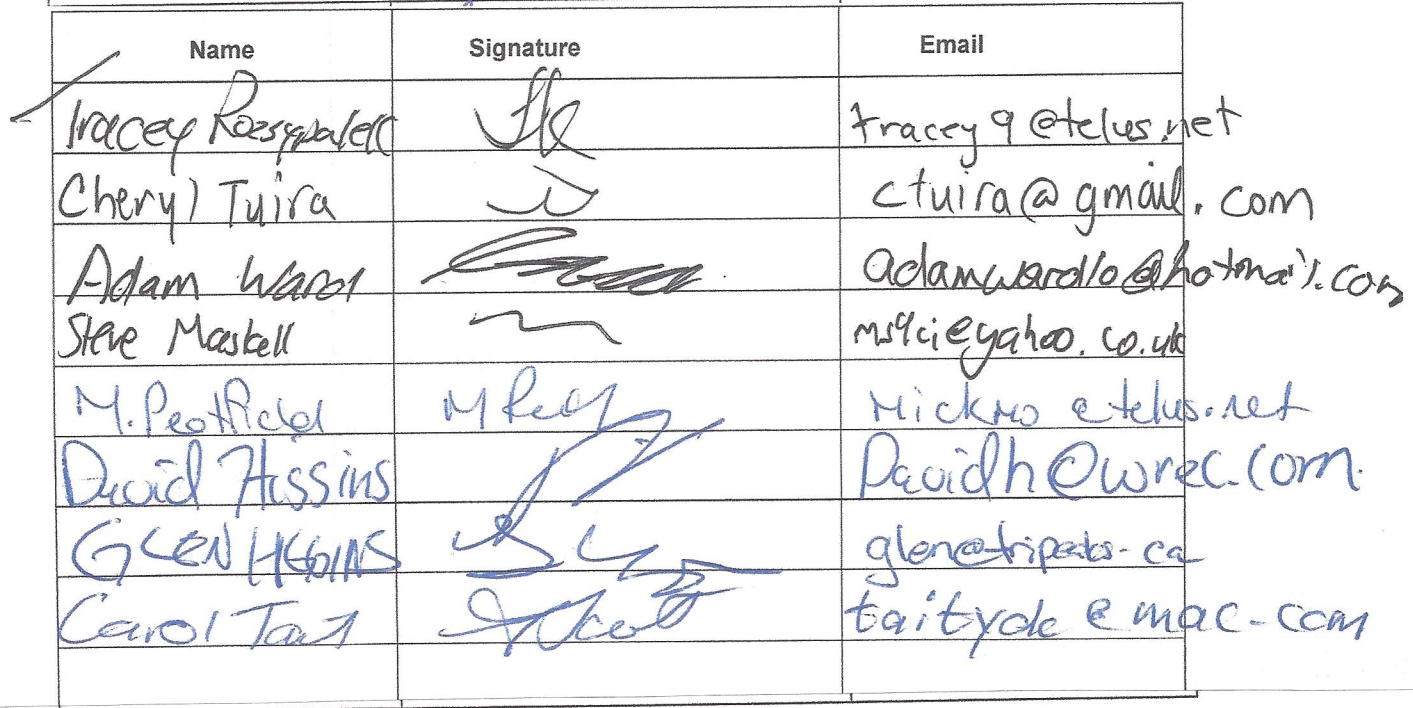 Name Signature Email
Tracey tracey9@telus.net
Cheryl Tuira ctuira@gmail.com
Adam Ward adamward10@hotmail.com
Steve Maskell ms9ci@yahoo.co.uk
M. Peatfield Mickmo@telus.net
David Davidh@wrec.com
GLEN HIGGINS
Carol Tait @mac.com